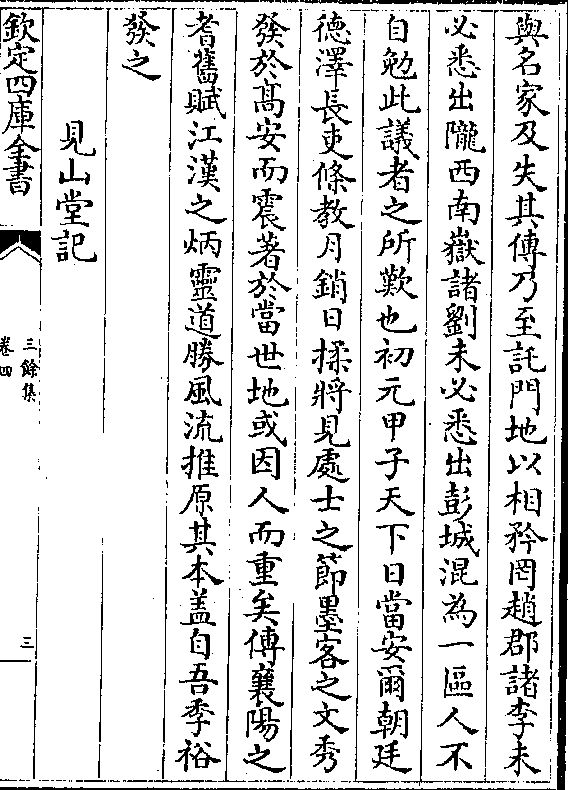 與名家及失其傳乃至託門地以相矜罔趙郡諸李未
必悉出隴西南嶽諸劉未必悉出彭城混為一區人不
自勉此議者之所歎也初元甲子天下日當安爾朝廷
德澤長吏條教月銷日揉將見處士之節墨客之文秀
發於髙安而震著於當世地或因人而重矣傳襄陽之
耆舊賦江漢之炳靈道勝風流推原其本盖自吾季裕
發之
見山堂記
欽定四庫全書
三餘集
卷四
三